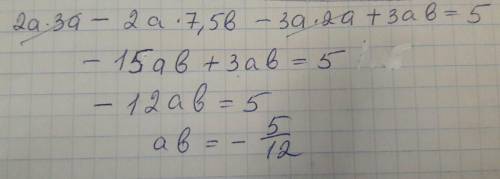 2a·3a − 2a·7,5b − 3a·2a + 3ab = 5
− 15ab + 3ab = 5
− 12ab = 5
ab = − 5/12